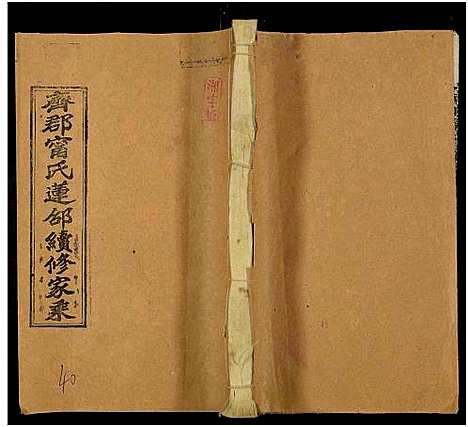 齊郡甯氏蓮邵續修家乘
40